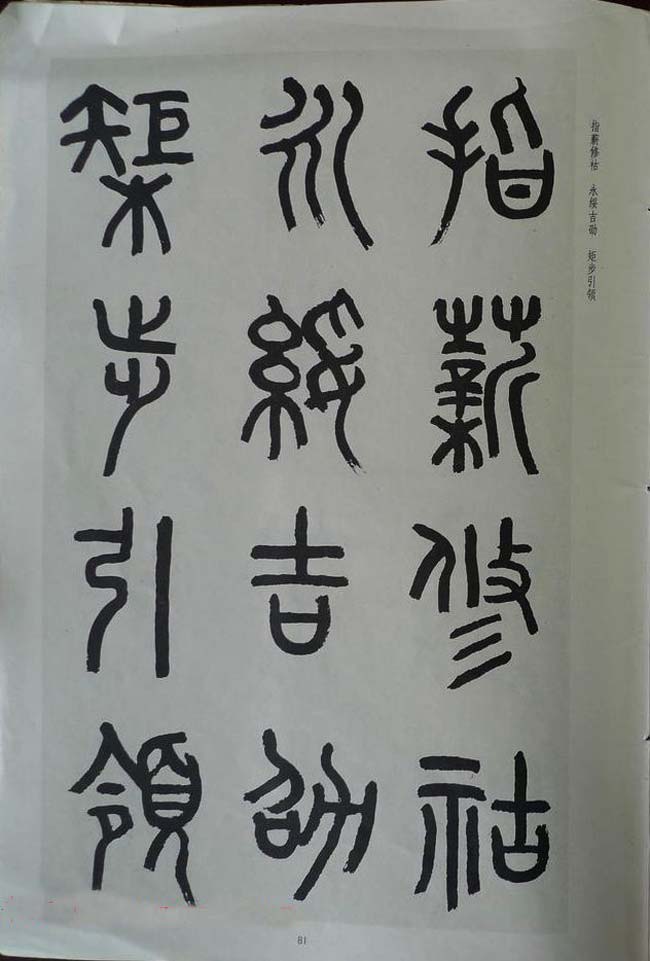 指薪修祜 永绥吉劭 矩步引领
指薪修祜
永綏吉劭
榘步引領
81